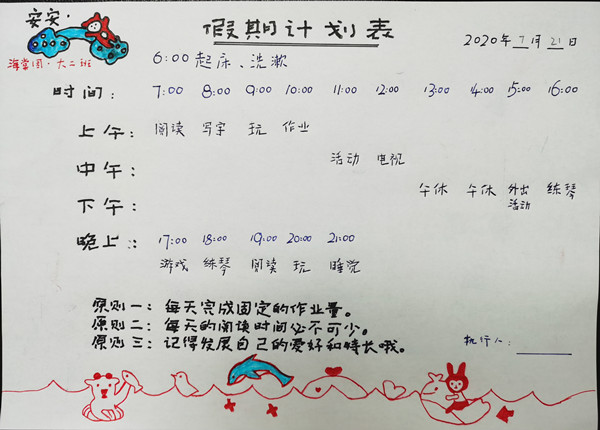 安安·
假期计划表
2020年7月21日
海棠园·大二班
6:00起床、洗漱
时间: 7:00 8:00 9:00 10:00 11:00 12:00 13:00 14:00 15:00 16:00
上午: 阅读 写字 玩 作业
中午: 活动 电视
下午: 午休 午休 外出活动 练琴
晚上: 17:00 18:00 19:00 20:00 21:00
游戏 练琴 阅读 玩 睡觉
原则一:每天完成固定的作业量。
原则二:每天的阅读时间必不可少。
原则三:记得发展自己的爱好和特长哦。
执行人: